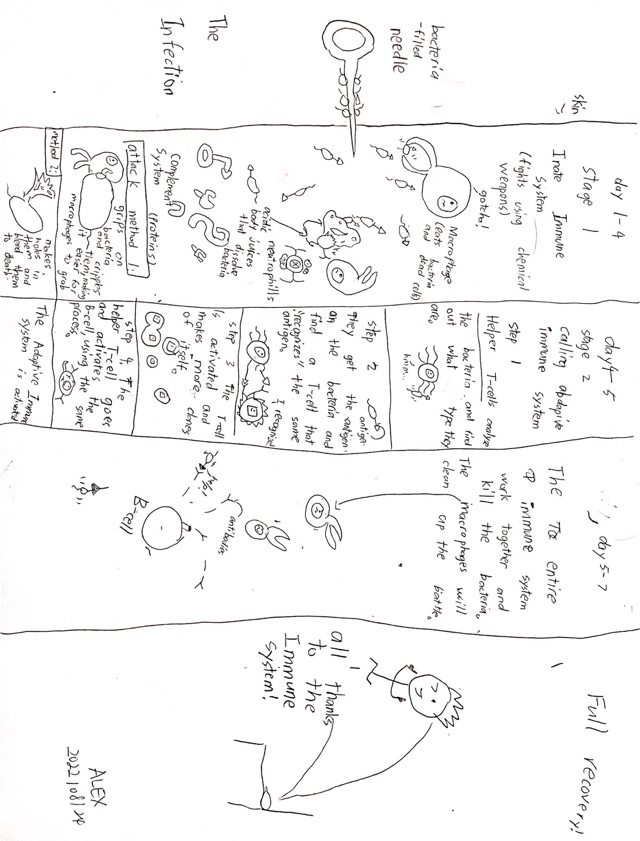 skin
bacteria
-filled
needle
The
Infection
day 1-4
stage 1
Inate Immune
System
(fights using chemical
weapons)
gotcha!
Macrophage
(eats bacteria
and dead cells)
acidic neutrophills
body juices
that dissolve
bacteria
complement (proteins)
System
attack method 1:
grips on
bacteria
and cripples
them, making
it easier for
macrophages to grab
method 2:
makes
holes in
them and
bleed them
to death
day 4-5
stage 2
calling abdapive
immune system
step 1
Helper T-cells analyse
the bacteria and find
out what type they
are.
hmm...
step 2
antigen
they get the antigen
on the bacteria and
find a T-cell that
"recognizes" the same
antigen.
I recognize!
step 3 The T-cell
is activated and
makes more clones
of itself.
step 4. The
helper T-cell goes
and activate the
B-cell using the same
process.
The Adaptive Immune
system is activated
day 5-7
The entire
immune system
work together and
kill the bacteria.
The macrophages will
clean up the battle.
antibodies
B-
cell
Full recovery!
all thanks
to the
Immune
System!
ALEX
2022/08/24